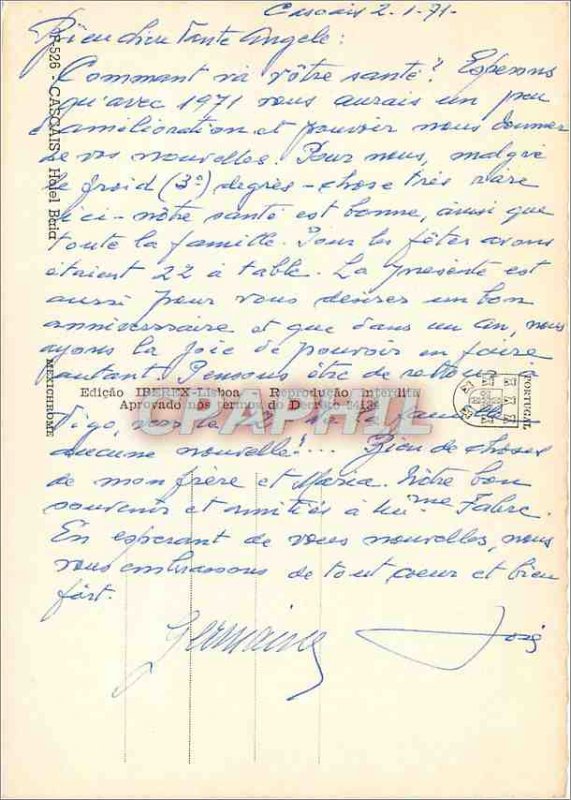 Cascais 2-1-71-
Bien chère Tante Angele:
Comment va vôtre santé? Esperons
qu'avec 1971 vous aurais un peu
d'amélioration et pouvoir nous donner
de vos nouvelles. Pour nous, malgré
le froid (3º) degrès - chose très rare
ici - nôtre santé est bonne, ainsi que
toute la famille. Pour les fêtes avons
étaient 22 à table. La présente est
aussi pour vous desirer un bon
anniverssaire et que dans un an, nous
ayons la joie de pouvoir en faire
autant. Pensons être de retour à
Vigo,
aucune nouvelle!... Bien de choses
de mon frère et Maria. Nôtre bon
souvenir et amitiés à Mme Fabre.
En esperant de vous nouvelles, nous
vous embrassons de tout coeur et bien
fort.
Germaine José
P-526 - CASCAIS Hotel Baia
MEXICHROME
Edição IBEREX-Lisboa Reprodução interdita
Aprovado nos termos do Decreto
PORTUGAL
CPAPHIL